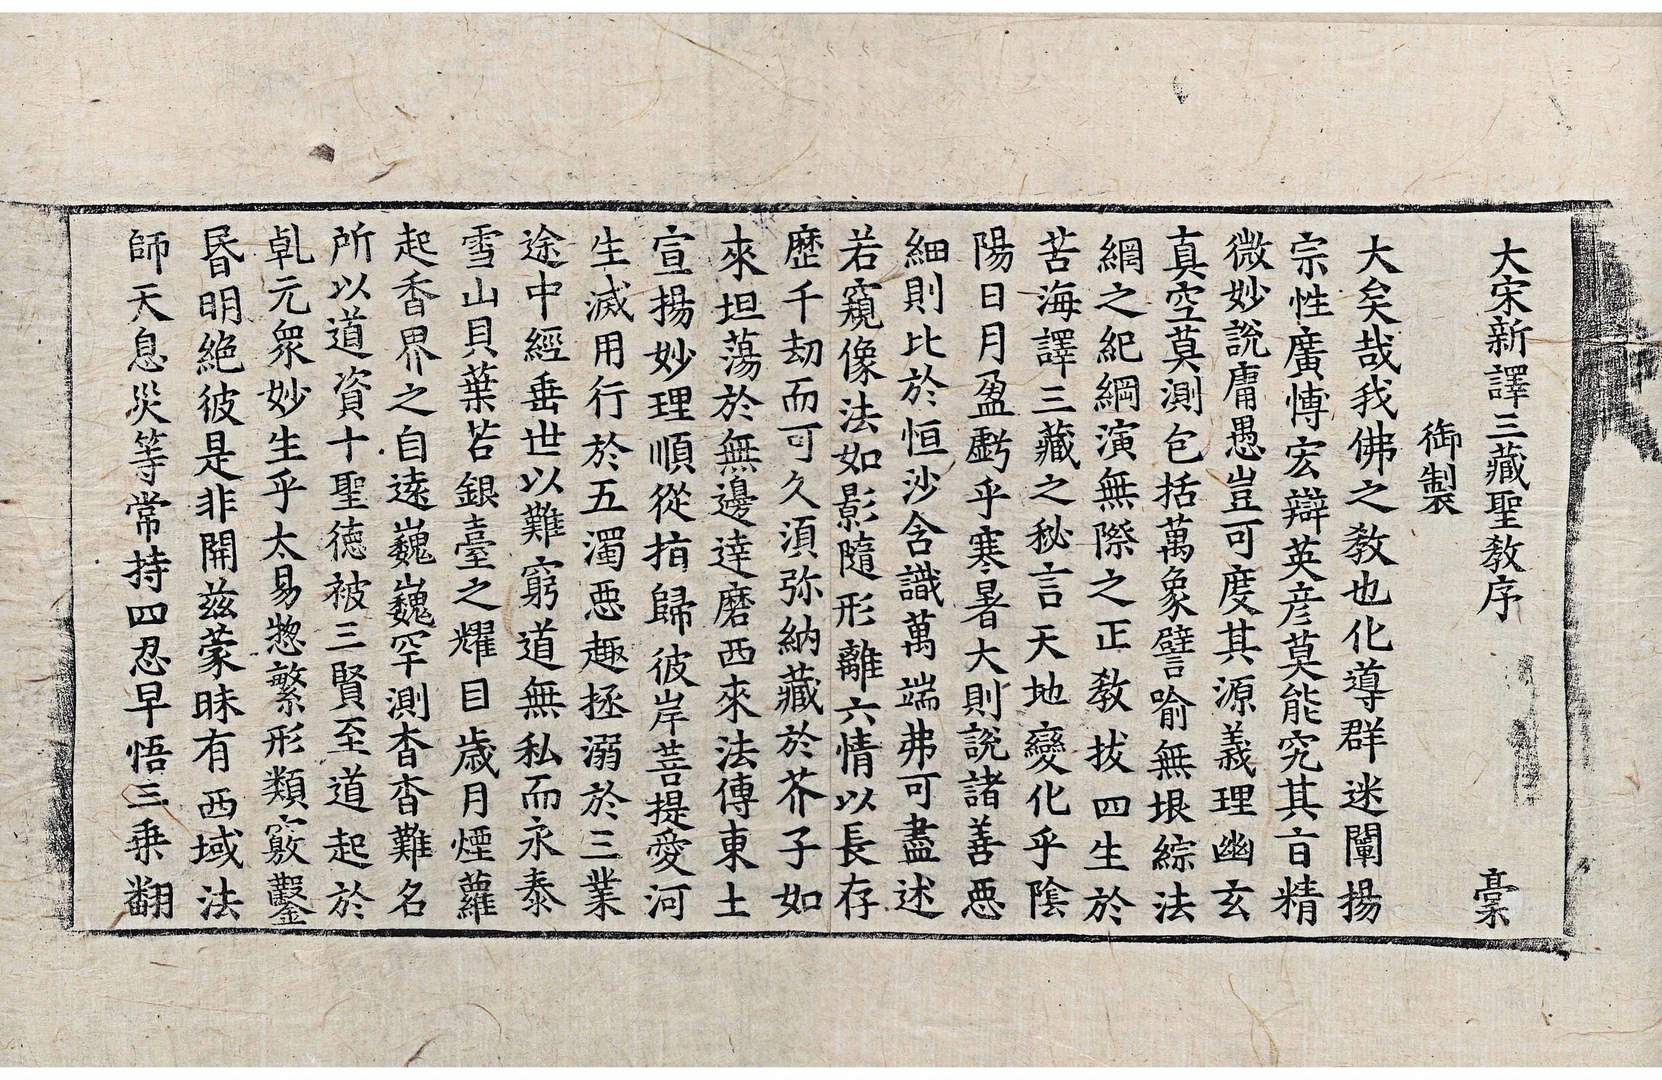 大宋新譯三藏聖敎序 槀
御製
大矣哉我佛之敎也化導群迷闡揚
宗性廣博宏辯英彦莫能究其旨精
微妙說庸愚豈可度其源義理幽玄
真空莫測包括萬象譬喻無垠綜法
網之紀綱演無際之正敎拔四生於
苦海譯三藏之秘言天地變化乎陰
陽日月盈虧乎寒暑大則說諸善惡
細則比於恒沙含識萬端弗可盡述
若窺像法如影隨形離六情以長存
歷千劫而可久湏弥納藏於芥子如
來坦蕩於無邊達磨西來法傳東土
宣揚妙理順從指歸彼岸菩提愛河
生滅用行於五濁惡趣拯溺於三業
途中經垂世以難窮道無私而永泰
雪山貝葉若銀臺之耀目歲月煙蘿
起香界之自遠巍巍罕測杳杳難名
所以道資十聖德被三賢至道起於
乹元衆妙生乎太易惣繁形類竅鑿
昬明絶彼是非開玆蒙昧有西域法
師天息災等常持四忍早悟三乗翻